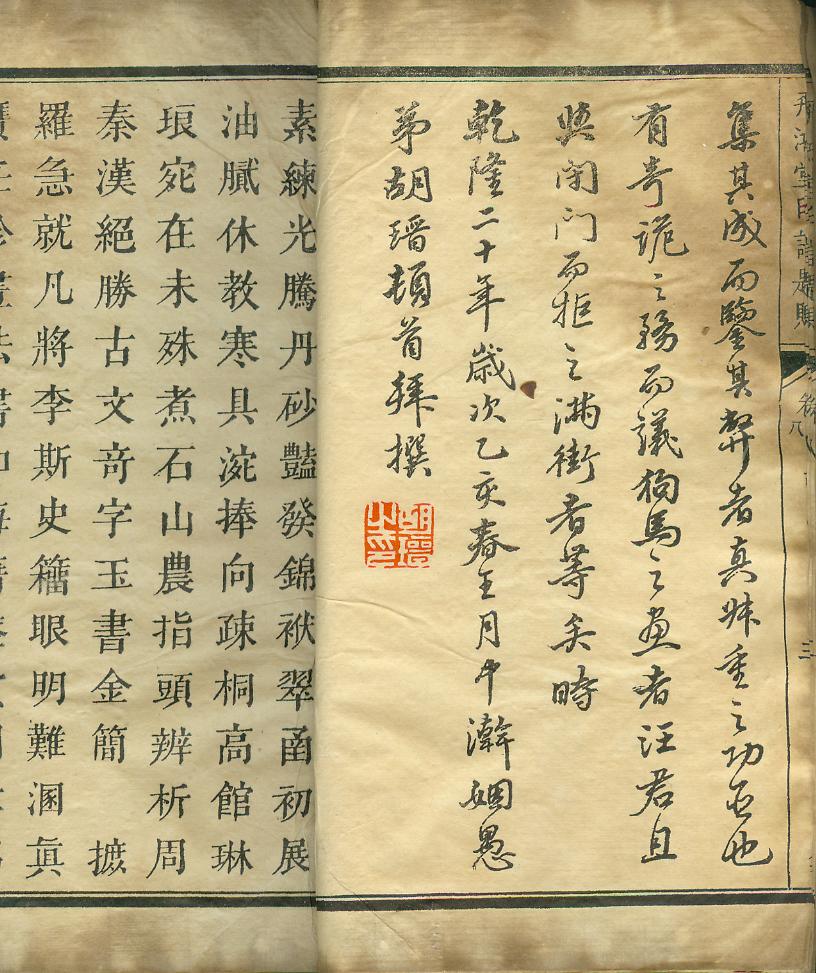 集其成而鑒其弊者真姝重之功臣也
有奇詭之務而議狗馬之畫者汪君且
與閉門而拒之滿街者等矣時
乾隆二十年歲次乙亥春王月中澣姻愚
弟胡瑨頓首拜撰
素練光騰丹砂豔發錦袱翠函初展
油膩休教寒具涴捧向疎桐高館琳
琅宛在未殊煮石山農指頭辨析周
秦漢絕勝古文奇字玉書金簡 摭
羅急就凡將李斯史籀眼明難溷眞